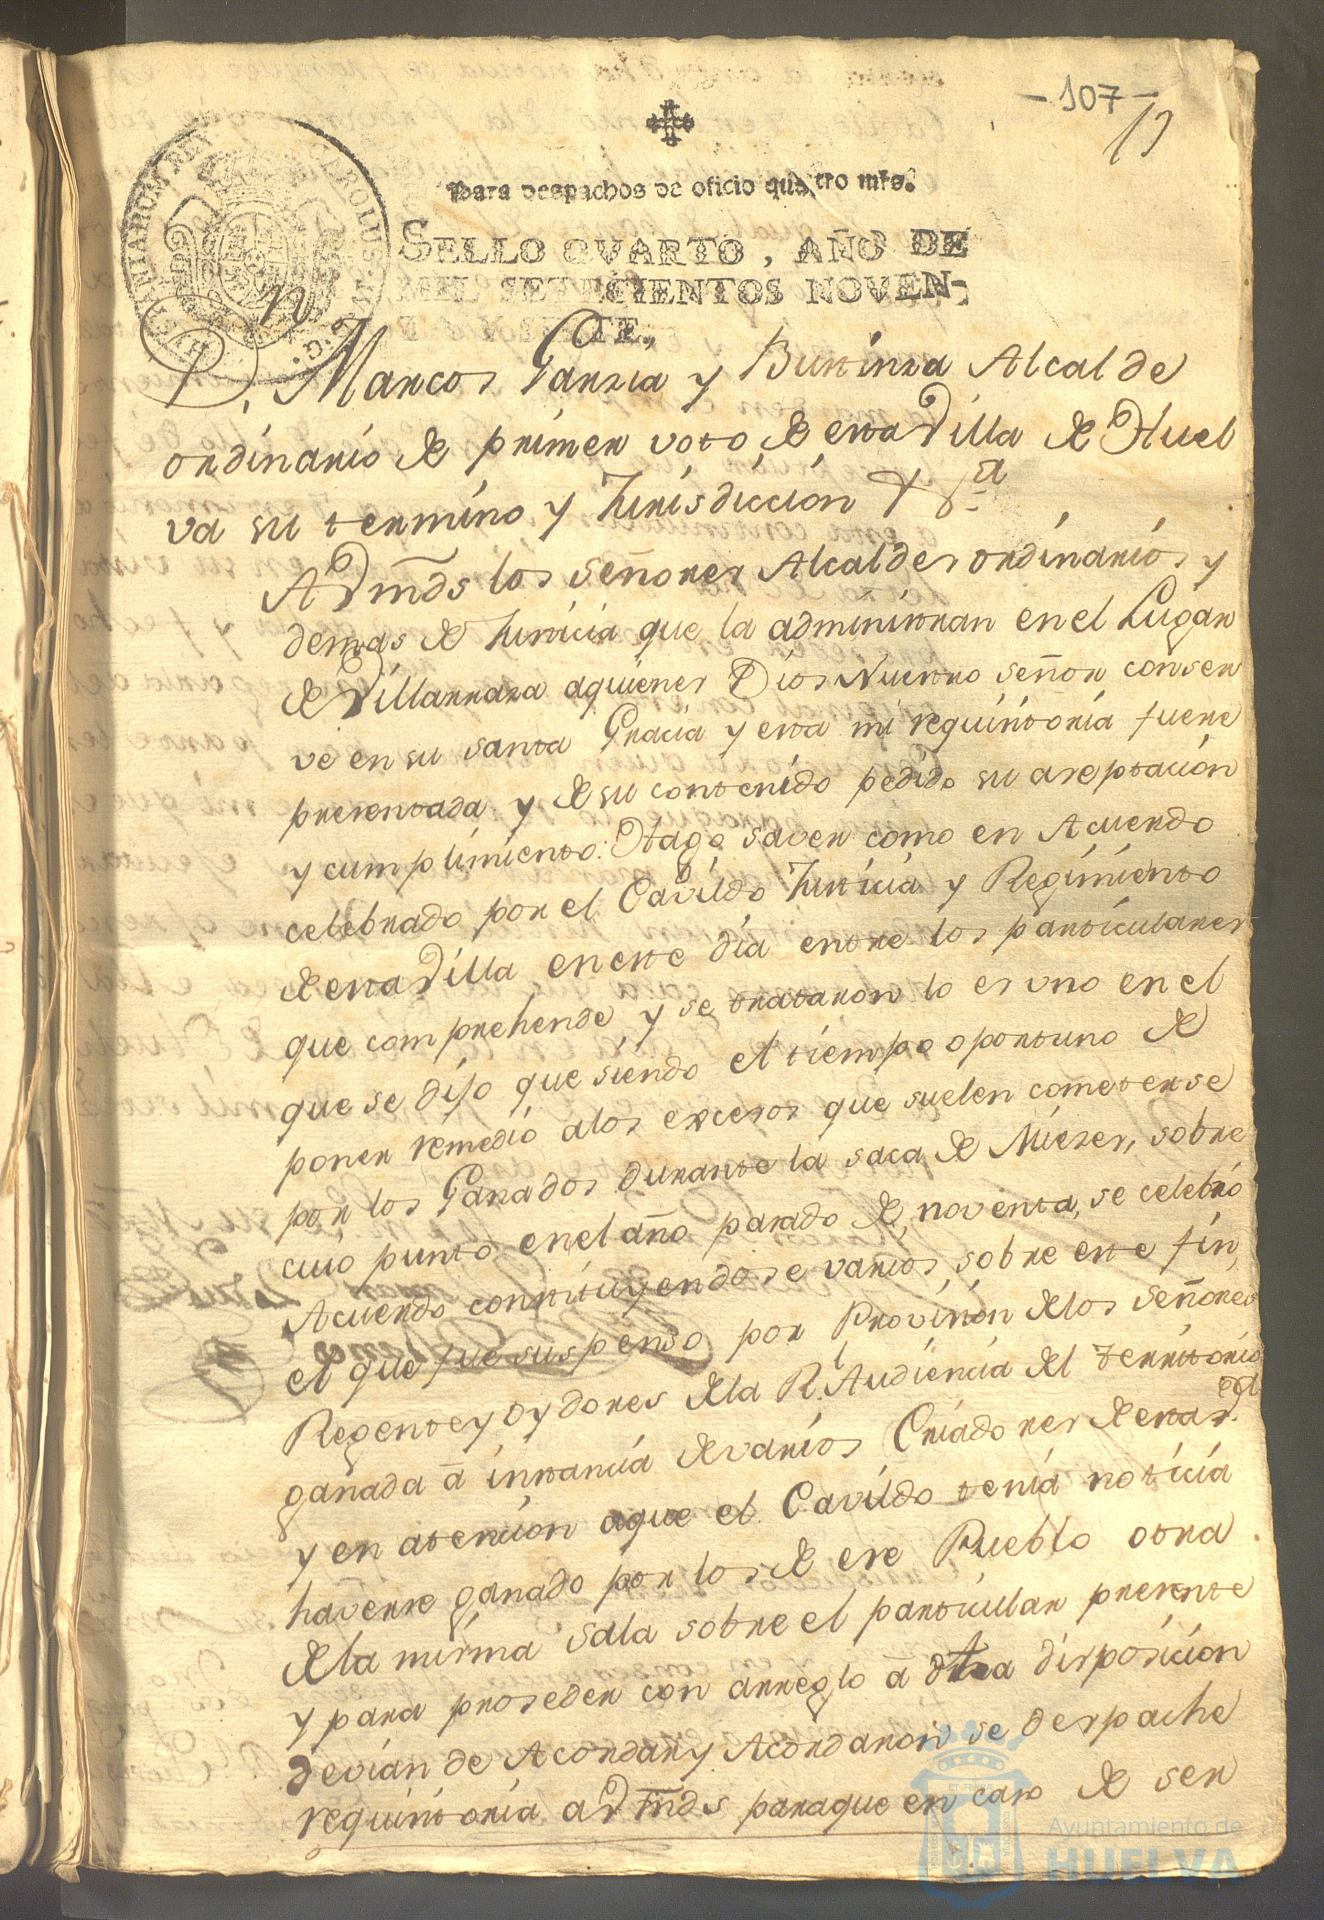 -107-
Para despachos de oficio quatro mrs.
SELLO QVARTO, AÑO DE
MIL SETECIENTOS NOVEN-
TA Y SIETE.
D. Marcos Garzia y Alcalde
ordinario de primer voto de esta Villa de Huel
va su termino y Jurisdiccion &a
A Vmds los señores Alcaldes ordinarios y
demas de Justicia que la administran en el Lugar
de Villarrasa aquienes Dios Nuestro señor conser
ve en su santa Gracia y esta mi requisitoria fuere
presentada y de su contenido pedido su aseptacion
y cumplimiento: Hago saver como en Acuerdo
celebrado por el Cavildo Justicia y Regimiento
de esta Villa en este dia entre los particulares
que comprehende y se trataron lo es uno en el
que se dijo que siendo el tiempo oportuno de
poner remedio a los excesos que suelen cometerse
por los Ganados durante la saca de Mieses, sobre
cuio punto en el año pasado de noventa, se celebró
Acuerdo constituyendose varios sobre este fin,
el que fue suspenso por Provision de los Señores
Regente y Oydores de la Rl. Audiencia del territorio
ganada a instancia de varios Criadores de esta vecd.
y en atencion aque el Cavildo tenia noticia
haverse ganado por los de ese Pueblo otra
de la misma sala sobre el particular presente
y para proseder con arreglo a dha disposicion
devian de Acordar y Acordaron se despache
requisitoria a Vmds paraque en caso de ser
Ayuntamiento de
HUELVA